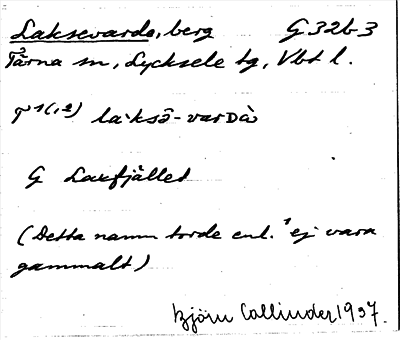 Laksevardo, berg G 32b3
Tärna sn, Lycksele lg, Vbt l.
T¹⁽,²⁾ la·ksō̂-varDà
G Laxfjället
(Detta namn torde enl. ¹ ej vara
gammalt)
Björn Collinder 1937.